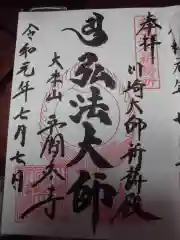 奉拝
川崎大師祈祷殿
弘法大師
大本山 平間寺
令和元年七月七日